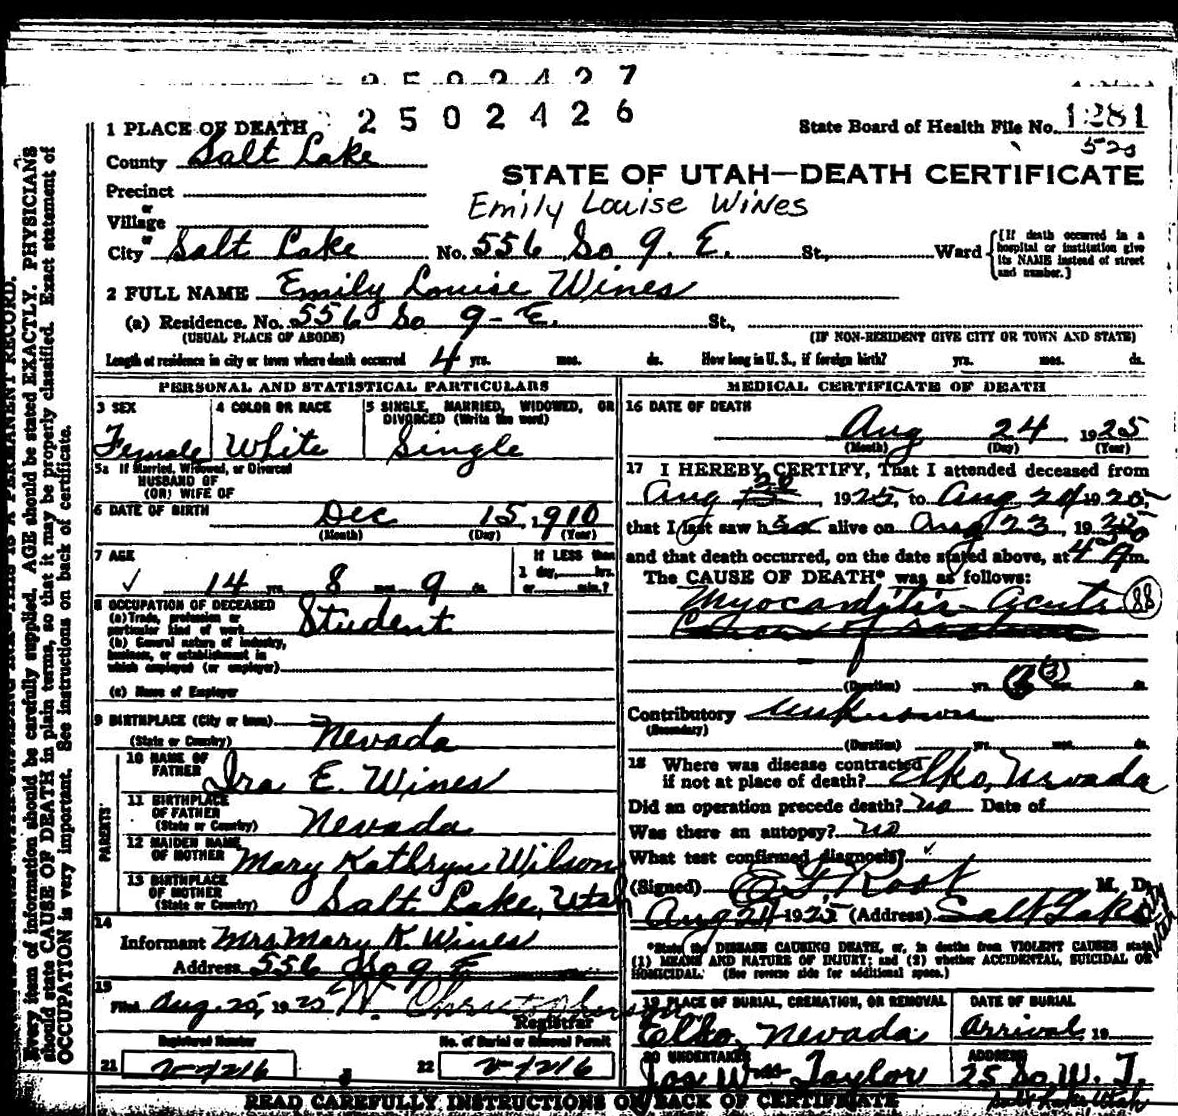 2502427
2502426
1 PLACE OF DEATH
State Board of Health File No. 1281
52s
County Salt Lake
STATE OF UTAH—DEATH CERTIFICATE
Precinct
or
Village
Emily Louise Wines
or
City Salt Lake No. 556 So 9. E. St., Ward {[If death occurred in a hospital or institution give its NAME instead of street and number.]
2 FULL NAME Emily Louise Wines
(a) Residence. No. 556 So 9-E. St.,
(USUAL PLACE OF ABODE) (IF NON-RESIDENT GIVE CITY OR TOWN AND STATE)
Length of residence in city or town where death occurred 4 yrs. mos. ds. How long in U. S., if foreign birth? yrs. mos. ds.
PERSONAL AND STATISTICAL PARTICULARS
3 SEX
Female
4 COLOR OR RACE
White
5 SINGLE, MARRIED, WIDOWED, OR DIVORCED (Write the word)
Single
5a If Married, Widowed, or Divorced
HUSBAND OF
(OR) WIFE OF
6 DATE OF BIRTH Dec 15, 1910
(Month) (Day) (Year)
7 AGE
If LESS than
1 day, hrs.
or min.?
14 yrs. 8 mos. 9 ds.
8 OCCUPATION OF DECEASED
(a) Trade, profession or
particular kind of work Student
(b) General nature of industry,
business, or establishment in
which employed (or employer)
(c) Name of Employer
9 BIRTHPLACE (City or town)
(State or Country) Nevada
PARENTS
10 NAME OF
FATHER Ira E. Wines
11 BIRTHPLACE
OF FATHER
(State or Country) Nevada
12 MAIDEN NAME
OF MOTHER Mary Kathryn Wilson
13 BIRTHPLACE
OF MOTHER
(State or Country) Salt Lake, Utah
14
Informant Mrs Mary K. Wines
Address 556 So 9 E
15
Filed Aug. 25, 1925
Registrar
Registered Number
21
No. of Burial or Removal Permit
22
MEDICAL CERTIFICATE OF DEATH
16 DATE OF DEATH
Aug 24 1925
(Month) (Day) (Year)
17 I HEREBY CERTIFY, That I attended deceased from
20
Aug 15, 1925, to Aug 24 1925,
that I last saw her alive on Aug 23, 1925
and that death occurred, on the date stated above, at 4 m.
The CAUSE OF DEATH* was as follows:
Myocarditis - Acute 88
(Duration) yrs. (3) ds.
Contributory Unknown
(Secondary)
(Duration) yrs. mos. ds.
18 Where was disease contracted
if not at place of death? Elko, Nevada
Did an operation precede death? no Date of
Was there an autopsy? no
What test confirmed diagnosis? ✓
(Signed) Root M. D.
Aug 24 1925 (Address) Salt Lake City Utah
*State the DISEASE CAUSING DEATH, or, in deaths from VIOLENT CAUSES state
(1) MEANS AND NATURE OF INJURY; and (2) whether ACCIDENTAL, SUICIDAL OR
HOMICIDAL. (See reverse side for additional space.)
19 PLACE OF BURIAL, CREMATION, OR REMOVAL
Elko, Nevada
DATE OF BURIAL
Arrival 19
20 UNDERTAKER
Jos Wm Taylor
ADDRESS
25 So. W. T.
Salt Lake Utah
READ CAREFULLY INSTRUCTIONS ON BACK OF CERTIFICATE
Every item of information should be carefully supplied. AGE should be stated EXACTLY. PHYSICIANS
should state CAUSE OF DEATH in plain terms, so that it may be properly classified. Exact statement of
OCCUPATION is very important. See instructions on back of certificate.